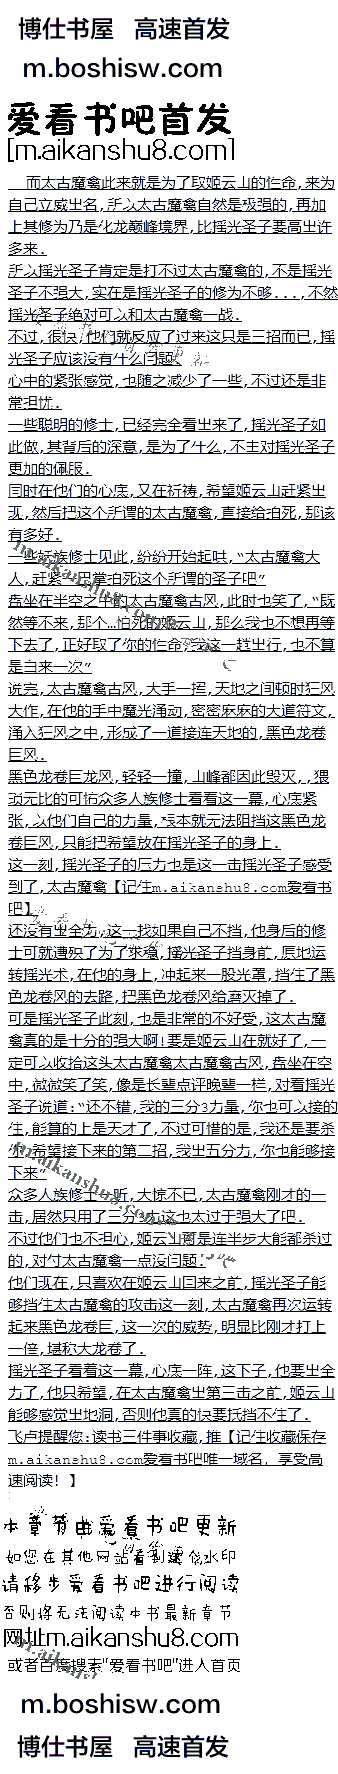 博仕书屋 高速首发
m.boshisw.com
爱看书吧首发
[m.aikanshu8.com]
而太古魔禽此来就是为了取姬云山的性命,来为
自己立威出名,所以太古魔禽自然是极强的,再加
上其修为乃是化龙巅峰境界,比摇光圣子要高出许
多来.
所以摇光圣子肯定是打不过太古魔禽的,不是摇光
圣子不强大,实在是摇光圣子的修为不够...,不然
摇光圣子绝对可以和太古魔禽一战.
不过,很快,他们就反应了过来这只是三招而已,摇
光圣子应该没有什么问题.
心中的紧张感觉,也随之减少了一些,不过还是非
常担忧.
一些聪明的修士,已经完全看出来了,摇光圣子如
此做,其背后的深意,是为了什么,不主对摇光圣子
更加的佩服.
同时在他们的心底,又在祈祷,希望姬云山赶紧出
现,然后把这个所谓的太古魔禽,直接给拍死,那该
有多好.
一些妖族修士见此,纷纷开始起哄,“太古魔禽大
人,赶紧一巴掌拍死这个所谓的圣子吧”
盘坐在半空之中的太古魔禽古风,此时也笑了,“既
然等不来,那个…怕死的姬云山,那么我也不想再等
下去了,正好取了你的性命,我这一趟出行,也不算
是白来一次”
说完,太古魔禽古风,大手一挥,天地之间顿时狂风
大作,在他的手中魔光涌动,密密麻麻的大道符文,
涌入狂风之中,形成了一道接连天地的,黑色龙卷
巨风.
黑色龙卷巨龙风,轻轻一撞,山峰都因此毁灭,,猥
琐无比的可怖众多人族修士看看这一幕,心底紧
张,以他们自己的力量,根本就无法阻挡这黑色龙
卷巨风,只能把希望放在摇光圣子的身上.
这一刻,摇光圣子的压力也是这一击摇光圣子感受
到了,太古魔禽【记住m.aikanshu8.com爱看书
吧】
还没有出全力,这一找如果自己不挡,他身后的修
士可就遭殃了为了求稳,摇光圣子挡身前,原地运
转摇光术,在他的身上,冲起来一股光罩,挡住了黑
色龙卷风的去路,把黑色龙卷风给磨灭掉了.
可是摇光圣子此刻,也是非常的不好受,这太古魔
禽真的是十分的强大啊!要是姬云山在就好了,一
定可以收拾这头太古魔禽太古魔禽古风,盘坐在空
中,微微笑了笑,像是长辈点评晚辈一栏,对看摇光
圣子说道:“还不错,我的三分3力量,你也可以接的
住,能算的上是天才了,不过可惜的是,我还是要杀
你,希望接下来的第二招,我出五分力,你也能够接
下来”
众多人族修士一听,大惊不已,太古魔禽刚才的一
击,居然只用了三分力,这也太过于强大了吧.
不过他们也不担心,姬云山可是连半步大能都杀过
的,对付太古魔禽一点没问题.
他们现在,只喜欢在姬云山回来之前,摇光圣子能
够挡住太古魔禽的攻击这一刻,太古魔禽再次运转
起来黑色龙卷巨,这一次的威势,明显比刚才打上
一倍,堪称大龙卷了.
摇光圣子看着这一幕,心底一阵,这下子,他要出全
力了,他只希望,在太古魔禽出第三击之前,姬云山
能够感觉出地洞,否则他真的快要抵挡不住了.
飞卢提醒您:读书三件事收藏,推【记住收藏保存
m.aikanshu8.com爱看书吧唯一域名，享受高
速阅读！】
本章节由爱看书吧更新
如您在其他网站看到这份水印
请移步爱看书吧进行阅读
否则将无法阅读本书最新章节
网址m.aikanshu8.com
或者百度搜索"爱看书吧"进入首页
m.boshisw.com
博仕书屋 高速首发